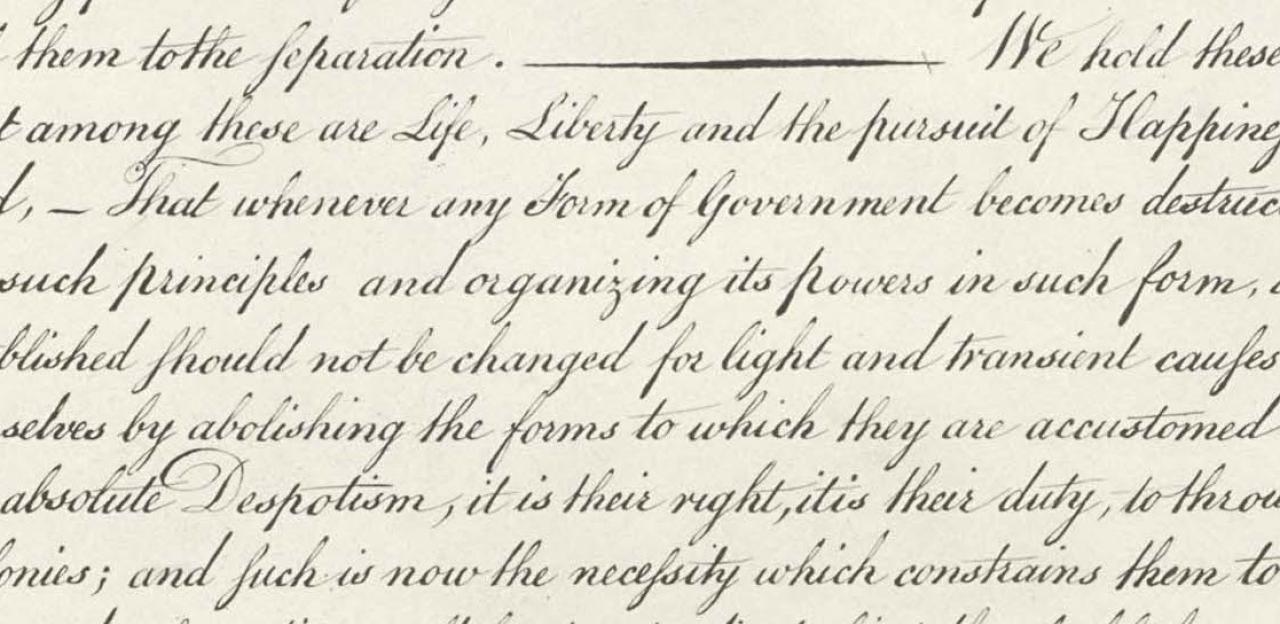 them tothe ſeparation . We hold these
among these are Life, Liberty and the pursuit of Happines
, — That whenever any Form of Government becomes destruc
such principles and organizing its powers in such form,
blished ſhould not be changed for light and transient cauſes
selves by abolishing the forms to which they are accustomed
absolute Despotism, it is their right, itis their duty, to throw
onies; and ſuch is now the neceſsity which constrains them to